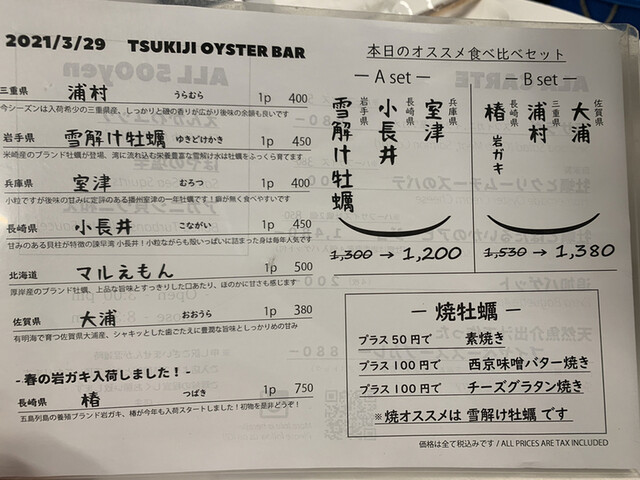 2021/3/29 TSUKIJI OYSTER BAR
三重県 浦村 うらむら 1p 400
今シーズンは入荷希少の三重県産、しっかりと磯の香りが広がり後味の余韻も良いです
岩手県 雪解け牡蠣 ゆきどけかき 1p 450
米崎産のブランド牡蠣が登場、湾に流れ込む栄養豊富な雪解け水は牡蠣をふっくら育てます
兵庫県 室津 むろつ 1p 400
小粒ですが後味の甘みに定評のある播州室津の一年牡蠣です!癖が無く食べやすいです
長崎県 小長井 こながい 1p 450
甘みのある貝柱が特徴の諫早湾 小長井!小粒ながらも殻いっぱいに詰まった身は毎年人気です
北海道 マルえもん 1p 500
厚岸産のブランド牡蠣、上品な旨味とすっきりした口あたり、ほのかに甘さも感じます
佐賀県 大浦 おおうら 1p 380
有明海で育つ佐賀県大浦産、シャキッとした歯ごたえに豊潤な旨味としっかりめの甘み
- 春の岩ガキ入荷しました! -
長崎県 椿 つばき 1p 750
五島列島の養殖ブランド岩ガキ、椿が今年も入荷スタートしました!初物を是非どうぞ!
本日のオススメ食べ比べセット
― A set ―
兵庫県 室津
長崎県 小長井
岩手県 雪解け牡蠣
1,300 → 1,200
― B set ―
佐賀県 大浦
三重県 浦村
長崎県 椿 岩ガキ
1,530 → 1,380
― 焼牡蠣 ―
プラス50円で 素焼き
プラス100円で 西京味噌バター焼き
プラス100円で チーズグラタン焼き
※焼オススメは 雪解け牡蠣 です
価格は全て税込みです / ALL PRICES ARE TAX INCLUDED